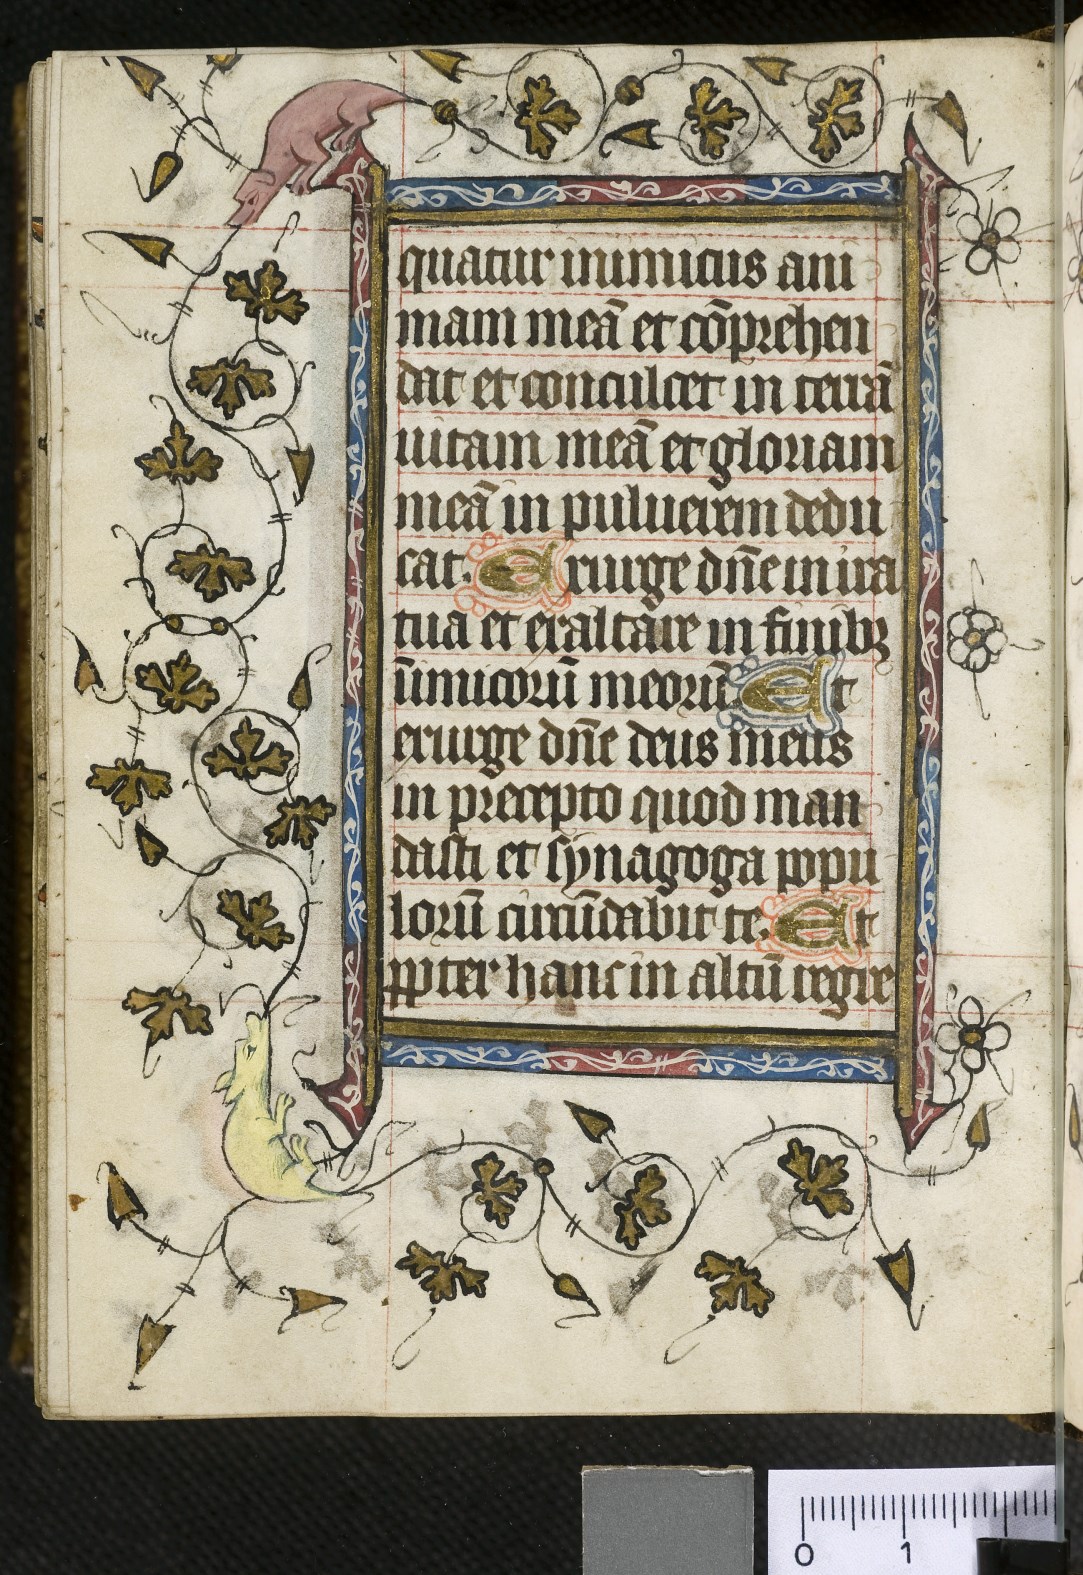 quatur inimicus ani
mam meā et cōprehen
dat et conculcet in terrā
uitam meā et gloriam
meā in puluerem dedu
cat. Exurge dn̄e in ira
tua et exaltare in finibꝫ
īimicorū meorū. Et
exurge dn̄e deus meus
in precepto quod man
dasti et synagoga popu
lorū circūdabit te. Et
ꝓpter hanc in altū regre
0 1